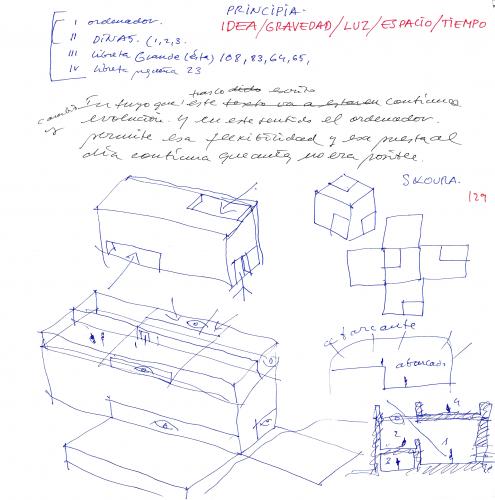 PRINCIPIA.
IDEA/GRAVEDAD/LUZ/ESPACIO/TIEMPO
I ordenador.
II DINA5. (1,2,3.
III Libreta Grande (ésta) 108, 83, 64, 65,
IV libreta pequeña 23
escrito
Intuyo que este texto va a estar en continua
evolución. Y en este sentido el ordenador
permite esa flexibilidad y esa puesta al
día continua que antes no era posible.
129
abarcante
abarcado
4
2
1
3